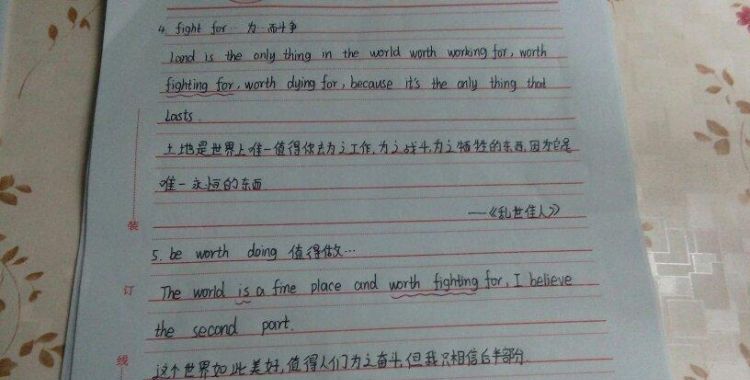 4. fight for 为…而斗争
Land is the only thing in the world worth working for, worth
fighting for, worth dying for, because it's the only thing that
lasts.
土地是世界上唯一值得你去为之工作,为之战斗,为之牺牲的东西,因为它是
唯一永恒的东西
——《乱世佳人》
装
5. be worth doing 值得做…
订
The world is a fine place and worth fighting for, I believe
the second part.
线
这个世界如此美好,值得人们为之奋斗,但我只相信后半部分.